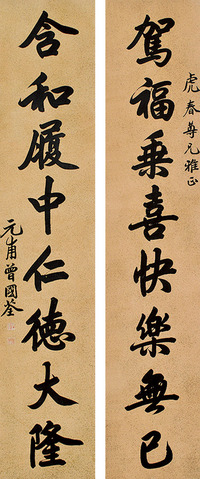 虎春尊兄雅正
駕福乘喜快樂無已
含和履中仁德大隆
元甫曾國荃